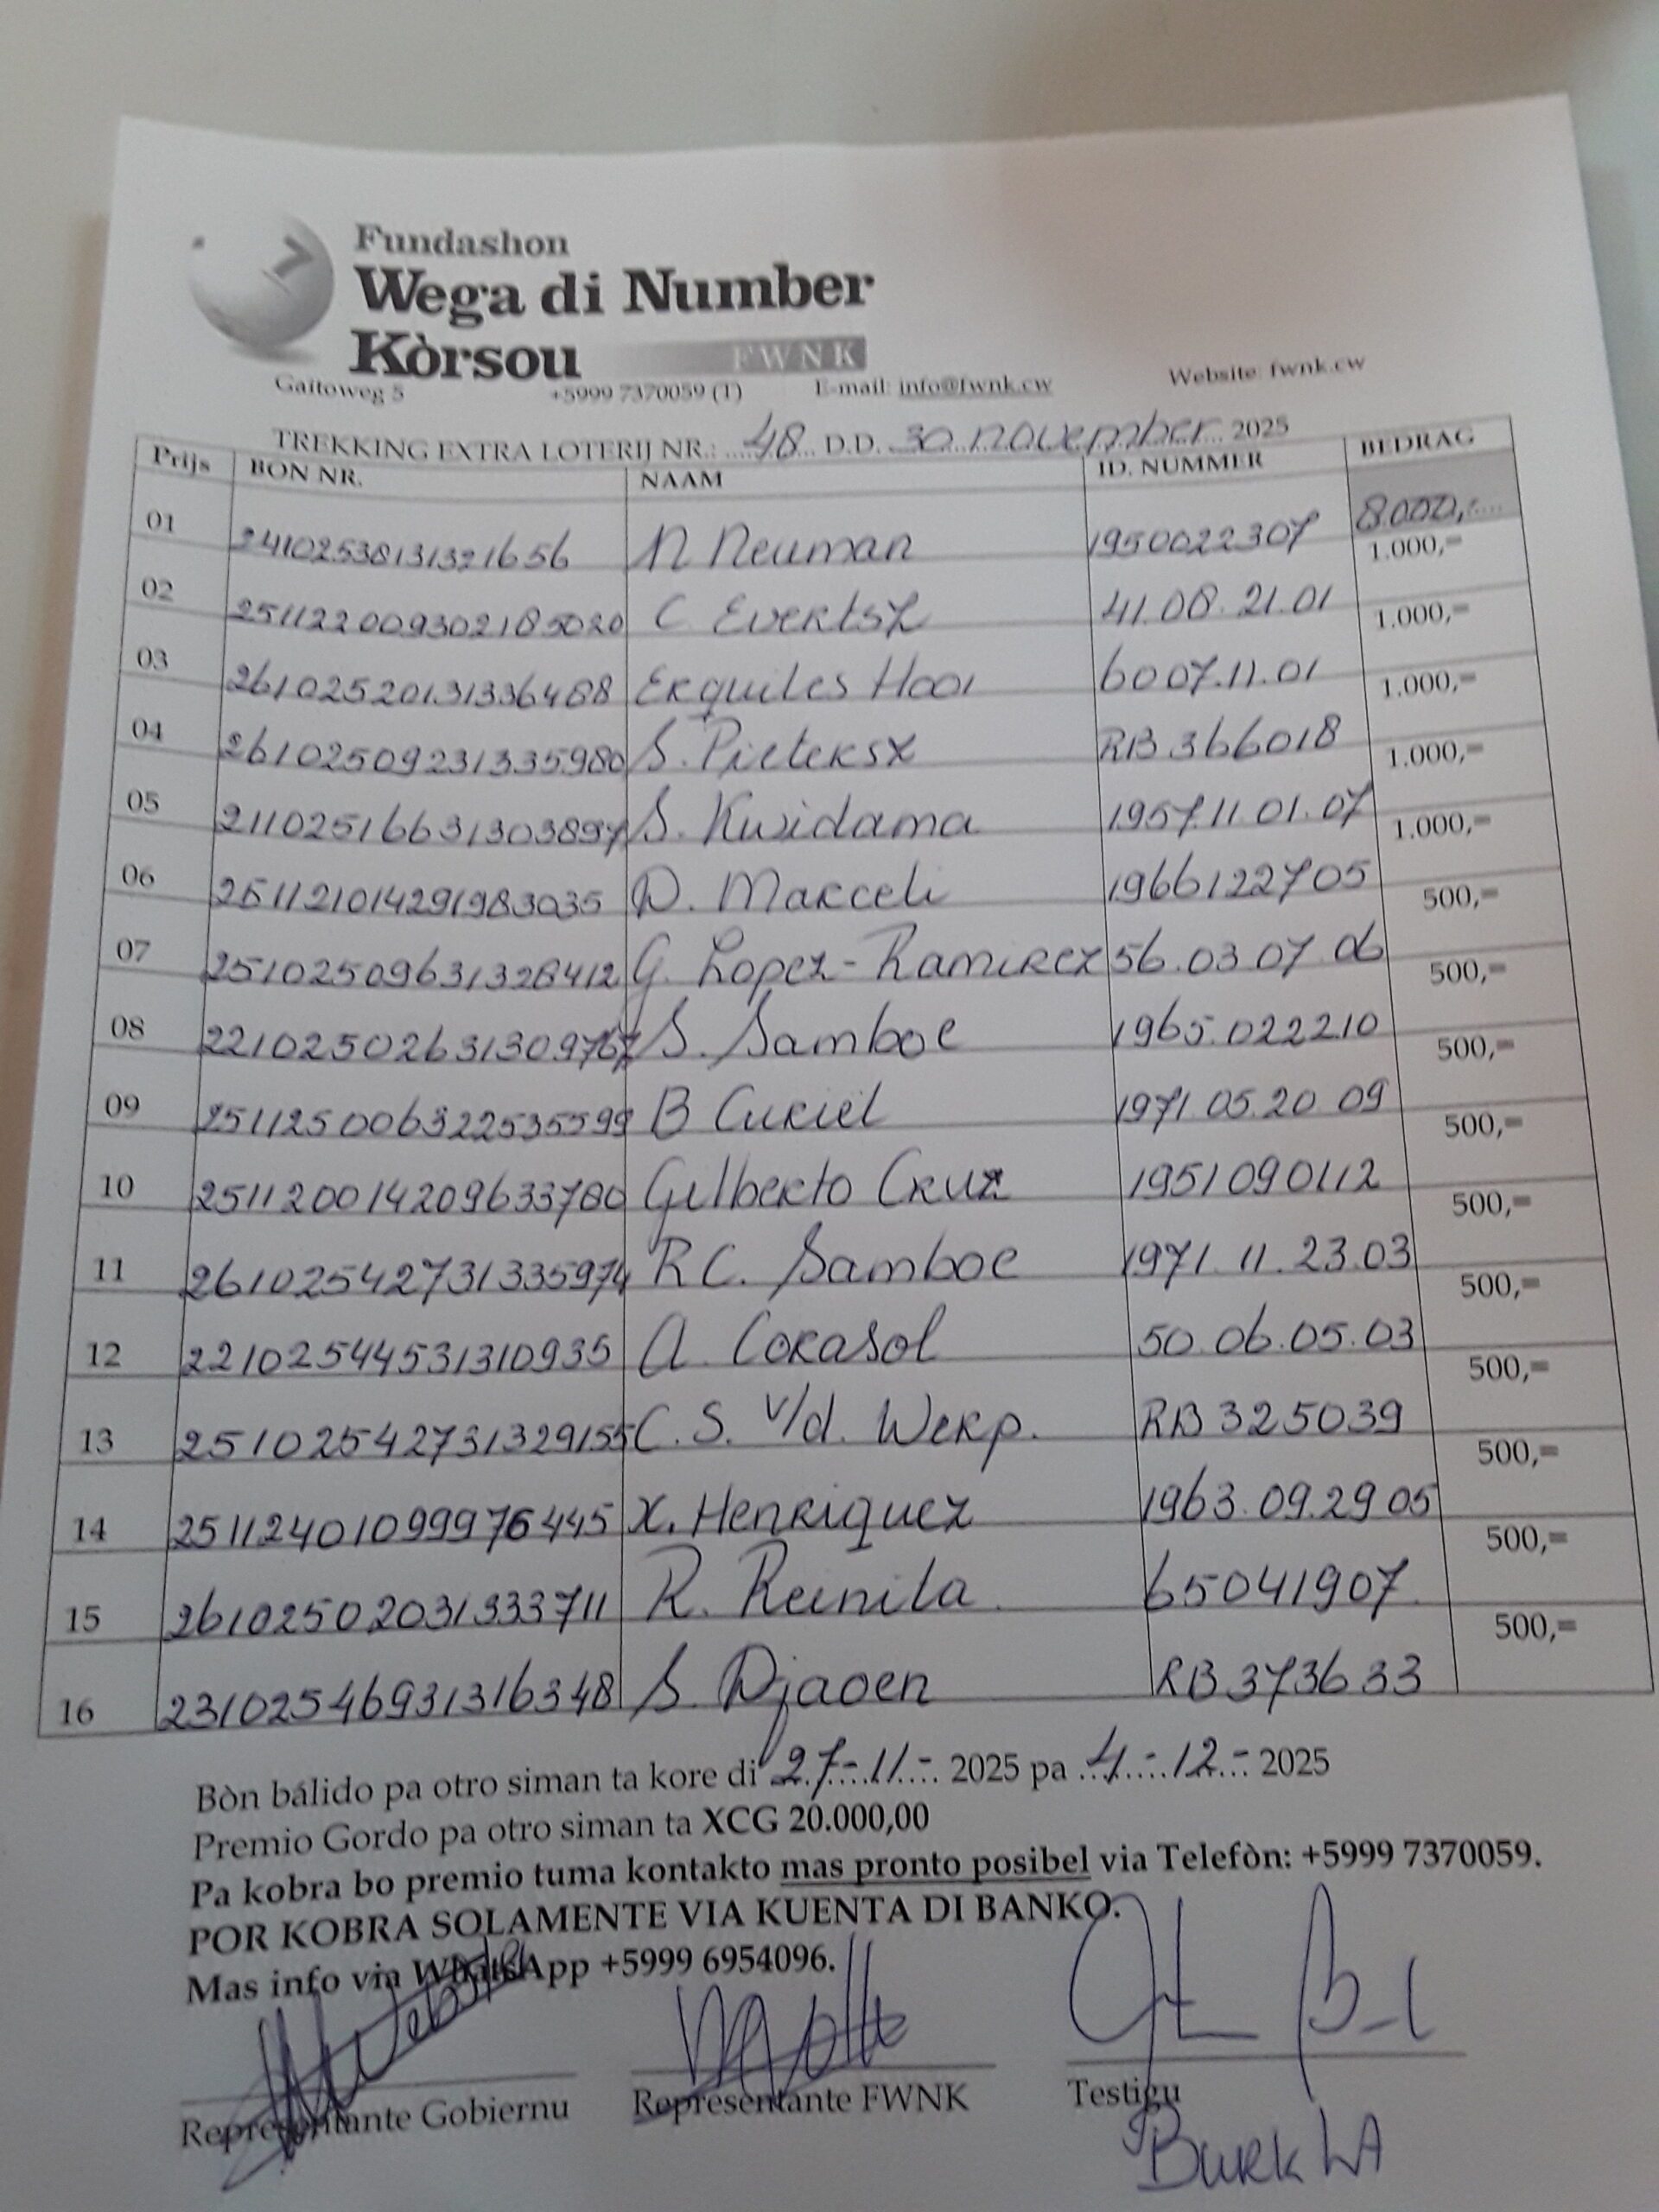 Fundashon
Wega di Number
Kòrsou
FWNK
Gaitoweg 5 +5999 7370059 (T) E-mail: info@fwnk.cw Website: fwnk.cw
TREKKING EXTRA LOTERIJ NR.: 48 D.D. 30 november 2025
Prijs BON NR. NAAM ID. NUMMER BEDRAG
01 N Neuman 1950022307 8.000,-
1.000,=
02 251122009302185020 C Evertsz 41.08.21.01
1.000,=
03 26102520131336488 Erquiles Hooi 6007.11.01
1.000,=
04 26102509231335980 S. Pietersz RB 366018
1.000,=
05 21102516631303897 S. Kwidama 1957.11.01.07
1.000,=
06 2511210142919 83035 D. Marceli 1966122705
500,=
07 25102509631328412 G. Lopez-Ramirez 56.03.07.06
500,=
08 S. Samboe 1965.022210
500,=
09 251125006322535599 B Curiel 1971.05.20.09
500,=
10 251120014209633780 Gilberto Cruz 1951090112
500,=
11 26102542731335974 RC. Samboe 1971.11.23.03
500,=
12 22102544531310935 A. Corasol 50.06.05.03
500,=
13 25102542731329155 C. S. v/d. Werp. RB 325039
500,=
14 25112401099976445 X. Henriquez 1963.09.29 05
500,=
15 26102502031333711 R. Reinita 65041907
500,=
16 23102546931316348 S. Djaoen RB 373633
Bòn bálido pa otro siman ta kore di 27-11- 2025 pa 4-12- 2025
Premio Gordo pa otro siman ta XCG 20.000,00
Pa kobra bo premio tuma kontakto mas pronto posibel via Telefòn: +5999 7370059.
POR KOBRA SOLAMENTE VIA KUENTA DI BANKO.
Mas info via WhatsApp +5999 6954096.
Representante Gobiernu Representante FWNK Testigu
Burk LA